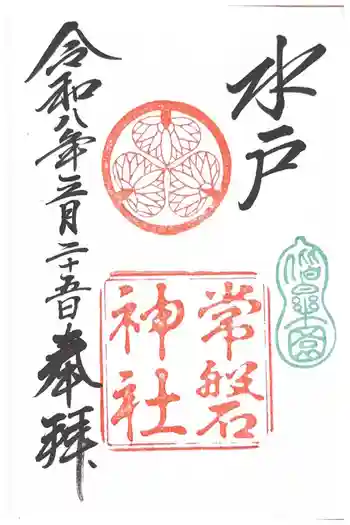 水戸
常磐
神社
偕楽園
令和八年三月二十五日奉拝